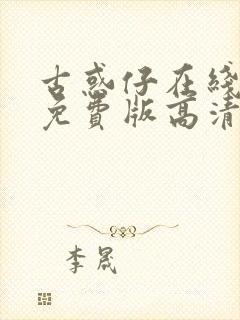 古惑仔在线
免费版高清
李晟